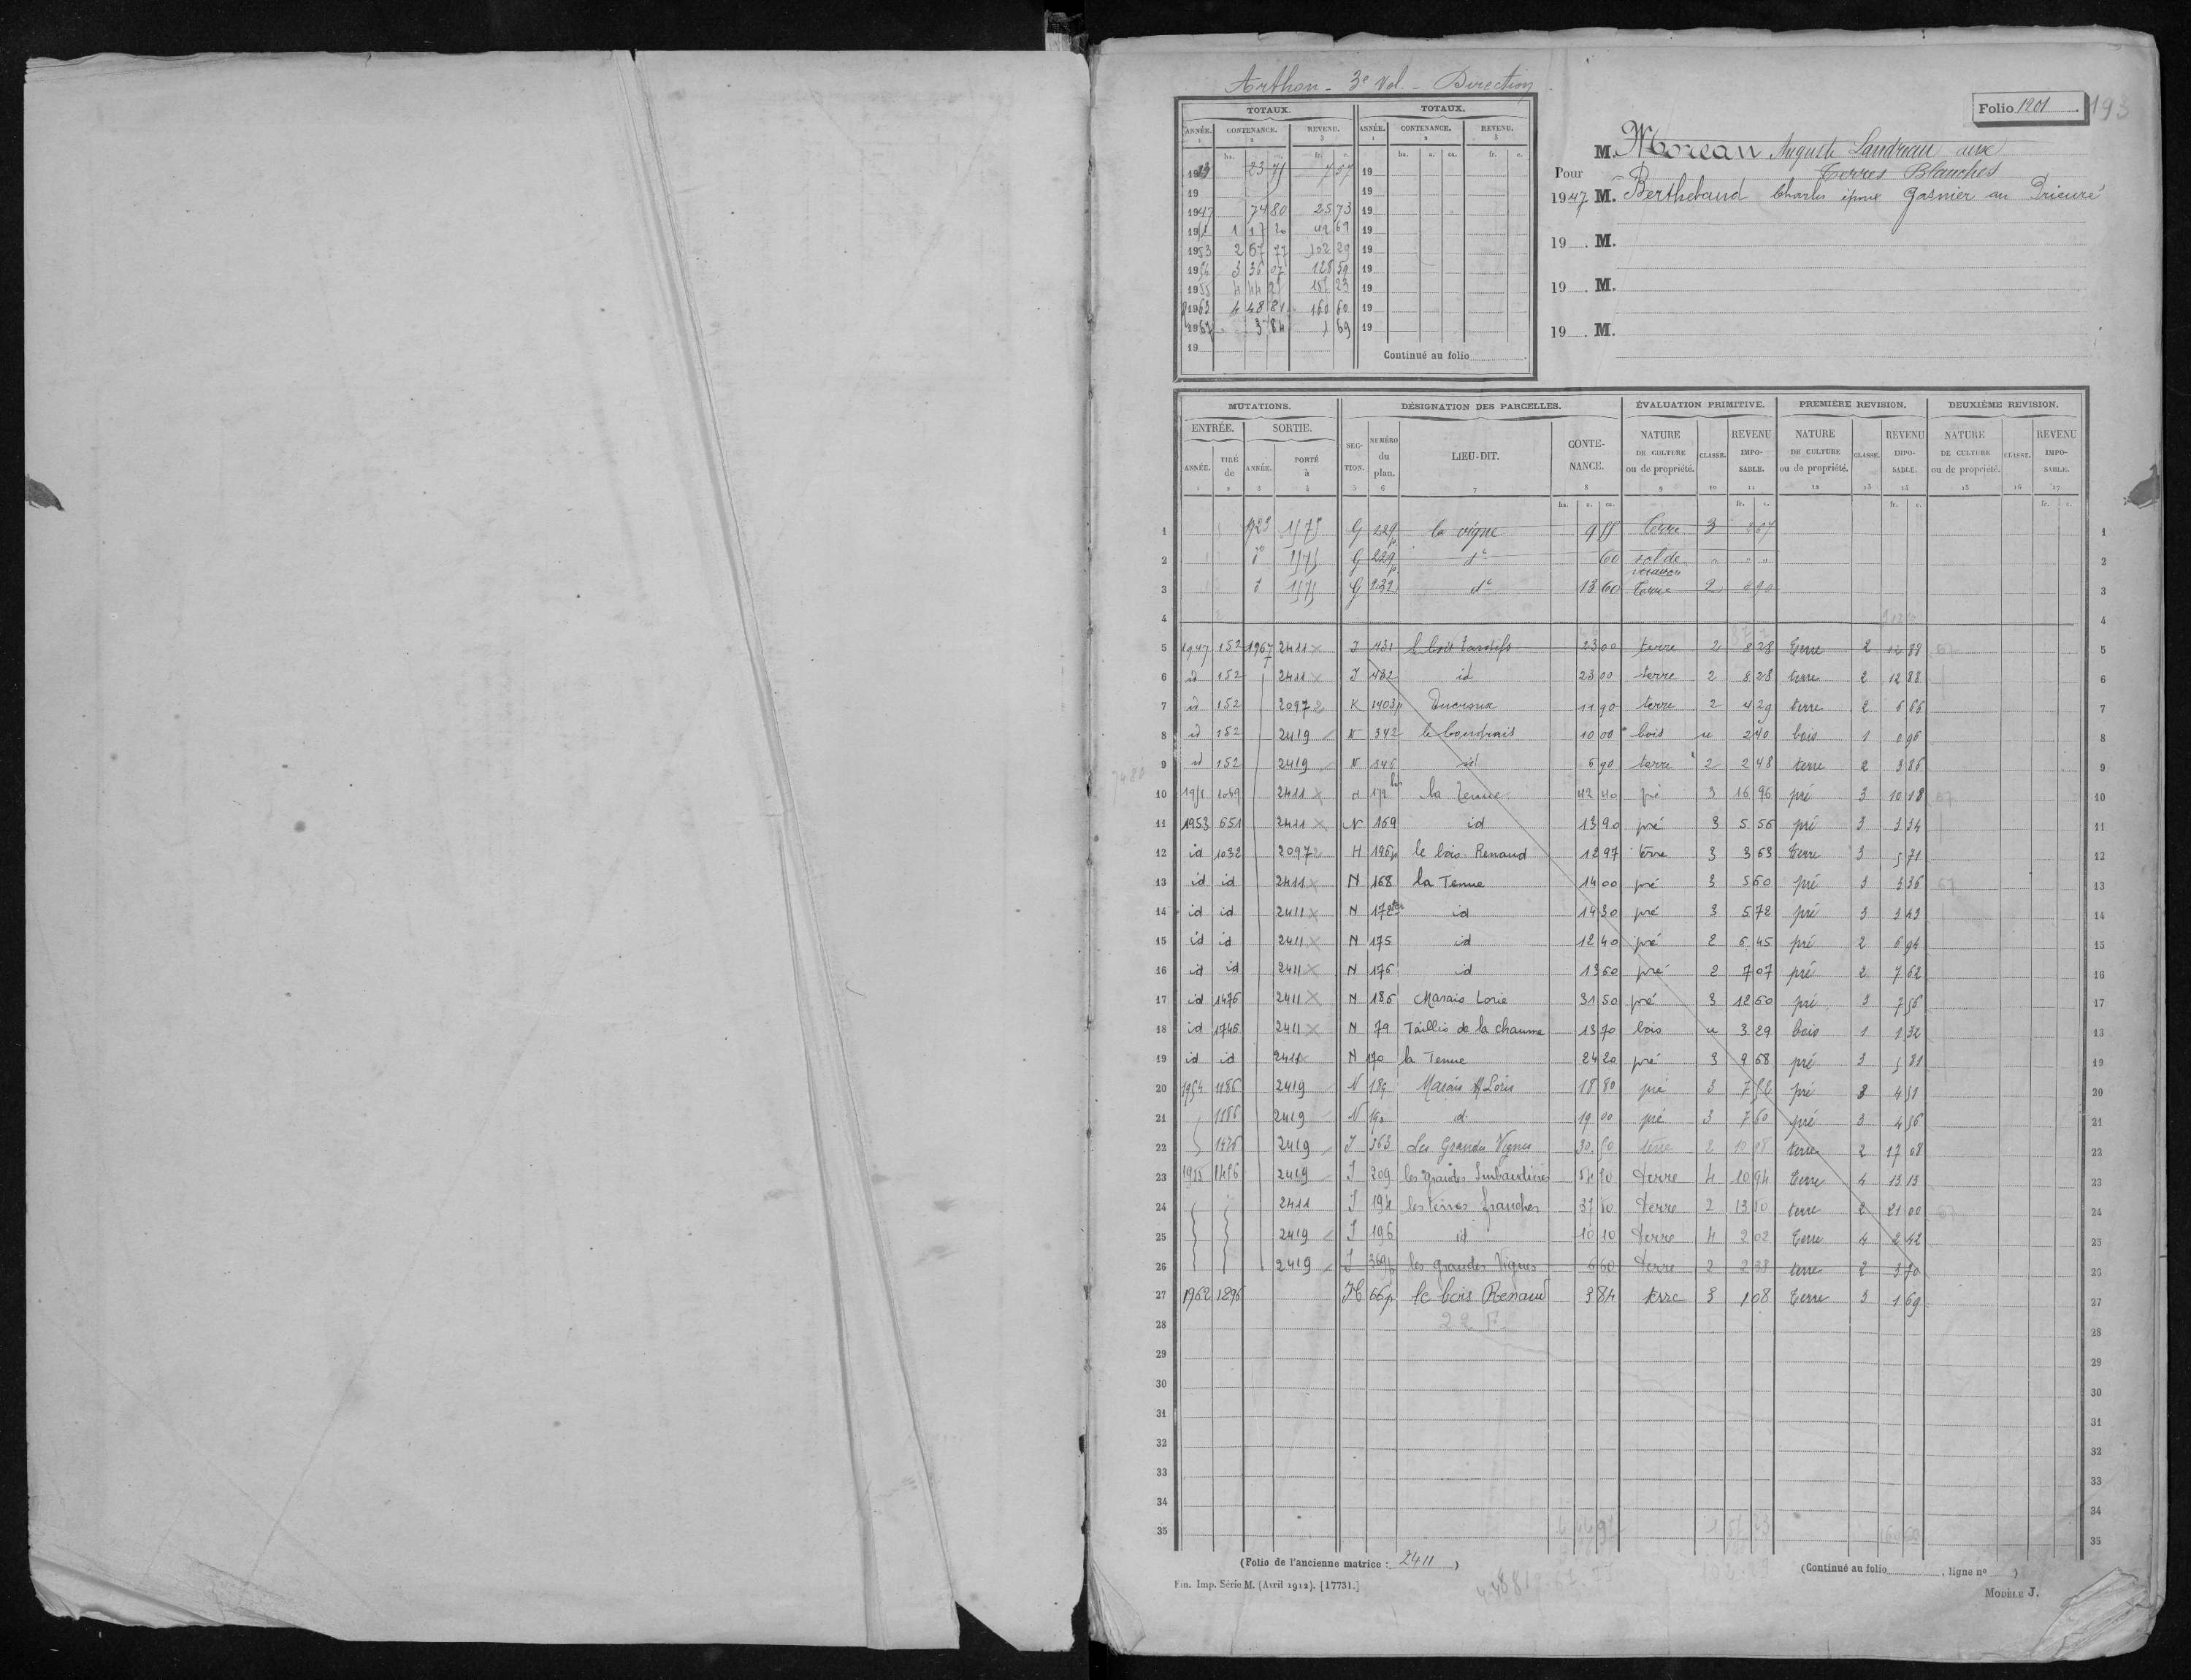 Arthon - 3e Vol. - Direction
Folio 1201
193
TOTAUX. TOTAUX.
ANNÉE. CONTENANCE. REVENU. ANNÉE. CONTENANCE. REVENU.
1 2 3 1 2 3
ha. a. ca. fr. c. ha. a. ca. fr. c.
1923 23 75 7 57 19
19 19
1947 74 80 25 73 19
1951 1 17 20 42 69 19
1953 2 67 77 102 29 19
1954 3 36 07 128 59 19
1955 4 44 97 157 23 19
1963 4 48 81 160 60 19
1967 3 84 1 69 19
19
Continué au folio
M. Moreau Auguste Landreau aux
Pour Terres Blanches
1947 M. Berthebaud Charles époux Gasnier au Prieuré
19 M.
19 M.
19 M.
MUTATIONS. DÉSIGNATION DES PARCELLES. ÉVALUATION PRIMITIVE. PREMIÈRE REVISION. DEUXIÈME REVISION.
ENTRÉE. SORTIE. SECTION. NUMÉRO du plan. LIEU-DIT. CONTENANCE. NATURE DE CULTURE ou de propriété. CLASSE. REVENU IMPOSABLE. NATURE DE CULTURE ou de propriété. CLASSE. REVENU IMPOSABLE. NATURE DE CULTURE ou de propriété. CLASSE. REVENU IMPOSABLE.
ANNÉE. TIRÉ de ANNÉE. PORTÉ à
1 2 3 4 5 6 7 8 9 10 11 12 13 14 15 16 17
ha. a. ca. fr. c. fr. c. fr. c.
1 1923 1575 G 229p la vigne 9 55 terre 3 2 67 1
2 do 1575 G 229p do 60 sol de " " " 2
3 do 1575 G 232 do 13 60 terre 2 4 90 3
4 4
5 1947 152 1967 2411 X I 431 le bois tardifs 23 00 terre 2 8 28 terre 2 12 88 67 5
6 id 152 2411 X I 432 id 23 00 terre 2 8 28 terre 2 12 88 6
7 id 152 2097 2 K 1403p 11 90 terre 2 4 29 terre 2 6 66 7
8 id 152 2419 N 342 10 00 bois u 2 40 bois 1 0 96 8
9 id 152 2419 N 346 id 6 90 terre 2 2 48 terre 2 3 86 9
7480
10 1951 1069 2411 X N 172 bis la Tenue 42 40 pré 3 16 96 pré 3 10 18 67 10
11 1953 651 2411 X N 169 id 13 90 pré 3 5 56 pré 3 3 34 11
12 id 1032 2097 2 H 196p le bois Renaud 12 97 terre 3 3 63 terre 3 5 71 12
13 id id 2411 X N 168 la Tenue 14 00 pré 3 5 60 pré 3 3 36 67 13
14 id id 2411 X N 172 ter id 14 30 pré 3 5 72 pré 3 3 43 14
15 id id 2411 X N 175 id 12 40 pré 2 6 45 pré 2 6 94 15
16 id id 2411 X N 176 id 13 60 pré 2 7 07 pré 2 7 62 16
17 id 1476 2411 X N 186 Marais Lorie 31 50 pré 3 12 60 pré 3 7 56 17
18 id 1746 2411 X N 79 Taillis de la chaume 13 70 bois u 3 29 bois 1 1 32 18
19 id id 2411 X N 170 la Tenue 24 20 pré 3 9 68 pré 3 5 81 19
20 1954 1186 2419 N 189 Marais Loris 18 80 pré 3 7 52 pré 3 4 51 20
21 1186 2419 N 190 id 19 00 pré 3 7 60 pré 3 4 56 21
22 1476 2419 I 363 Les Grandes Vignes 30 50 terre 2 10 98 terre 2 17 08 22
23 1955 1476 2419 I 209 les grandes 54 70 terre 4 10 94 terre 4 13 13 23
24 2411 I 194 les terres franches 37 50 terre 2 13 50 terre 2 21 00 67 24
25 2419 I 196 id 10 10 terre 4 2 02 terre 4 2 42 25
26 2419 I 369p les grandes Vignes 6 60 terre 2 2 38 terre 2 3 70 26
27 1962 1896 H 66p le bois Renaud 3 84 terre 3 1 08 terre 3 1 69 27
28 22 F 28
29 29
30 30
31 31
32 32
33 33
34 34
35 35
(Folio de l'ancienne matrice : 2411 ) (Continué au folio , ligne no )
Fin. Imp. Série M. (Avril 1912). [17731.]
MODÈLE J.